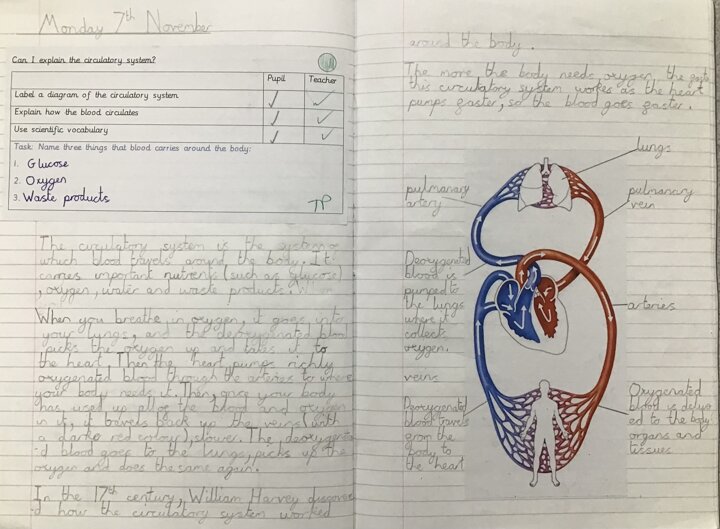 Monday 7th November
Can I explain the circulatory system?
Pupil Teacher
Label a diagram of the circulatory system
Explain how the blood circulates
Use scientific vocabulary
Task: Name three things that blood carries around the body:
1. Glucose
2. Oxygen
3. Waste products
TP
The circulatory system is the system
which blood travels around the body. It
carries important nutrients (such as Glucose)
, oxygen, water and waste products.
When you breathe in oxygen it goes into
your lungs, and the deoxygenated blood
picks the oxygen up and takes it to
the heart. Then the heart pumps richly
oxygenated blood through the arteries to where
your body needs it. Then, once your body
has used up all of the blood and oxygen
in it, it travels back up the veins (with
a darker red colour), slower. The deoxygenate
-d blood goes to the lungs, picks up the
oxygen and does the same again.
In the 17th century, William Harvey discovere
-d how the circulatory system worked
around the body.
The more the body needs oxygen, the faste
this circulatory system workes as the heart
pumps faster, so the blood goes faster.
lungs
pulmanary
artery
pulmanary
vein
Deoxygenated
blood is
pumped to
the lungs
where it
collects
oxygen.
arteries
veins
Deoxygenated
blood travels
from the
body to
the heart
Oxygenated
blood is deliver
ed to the body
organs and
tissues